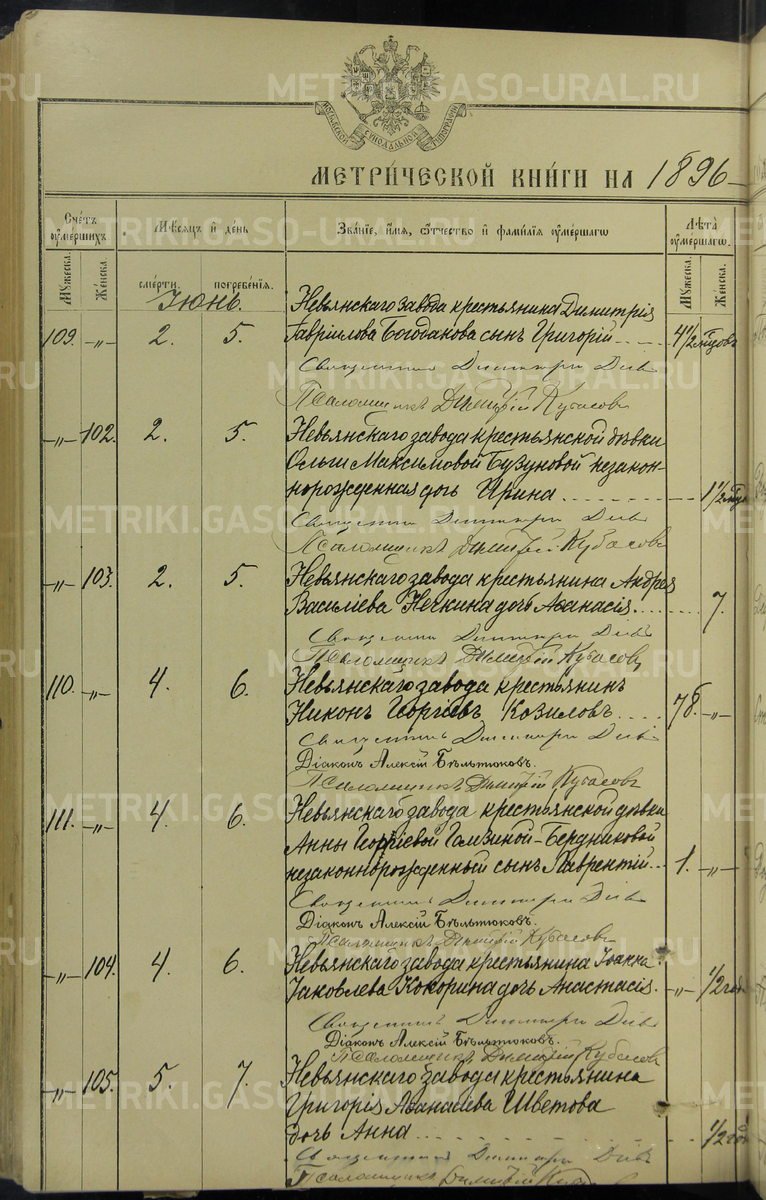 МОСКОВСКОЙ СѴНОДАЛЬНОЙ ТИПОГРАФІИ
МЕТРИ́ЧЕСКОЙ КНИ́ГИ НА 1896
Счетъ ѹмершихъ
Мѣсяцъ и день
Званіе, имя, ѻтчество и фамилія ѹмершаго
Лѣта ѹмершаго.
Мужеска.
Женска.
смерти.
погребенія.
Мужеска.
Женска.
Іюнь.
Невьянскаго завода крестьянина Димитрія
109. -„- 2. 5. Гавріилова Богданова сынъ Григорій 4 1/2
Священникъ Димитрій
Псаломщикъ Димитрій Кубасовъ
-„- 102. 2. 5. Невьянскаго завода крестьянской дѣвки
Ольги Максимовой Бузуновой незакон-
норожденная дочь Ирина 1 1/2
Священникъ Димитрій
Псаломщикъ Димитрій Кубасовъ
-„- 103. 2. 5. Невьянскаго завода крестьянина Андрея
Василіева Нечкина дочь Аѳанасія 7.
Священникъ Димитрій
Псаломщикъ Димитрій Кубасовъ
110. -„- 4. 6. Невьянскаго завода крестьянинъ
Никонъ Георгіевъ Козиловъ 78. -„-
Священникъ Димитрій
Діаконъ Алексій Бѣльтюковъ.
Псаломщикъ Димитрій Кубасовъ
111. -„- 4. 6. Невьянскаго завода крестьянской дѣвки
Анны Георгіевой Голзиной-Бердниковой
незаконнорожденный сынъ Лаврентій 1. -„-
Священникъ Димитрій
Діаконъ Алексій Бѣльтюковъ.
Псаломщикъ Димитрій Кубасовъ
-„- 104. 4. 6. Невьянскаго завода крестьянина Іоанна
Іаковлева Кокорина дочь Анастасія. -„- 1/2 года
Священникъ Димитрій
Діаконъ Алексій Бѣльтюковъ.
Псаломщикъ Димитрій Кубасовъ
-„- 105. 5. 7. Невьянскаго завода крестьянина
Григорія Аѳанасіева Шветова
дочь Анна 1/2
Священникъ Димитрій
Псаломщикъ Димитрій
METRIKI.GASO-URAL.RU